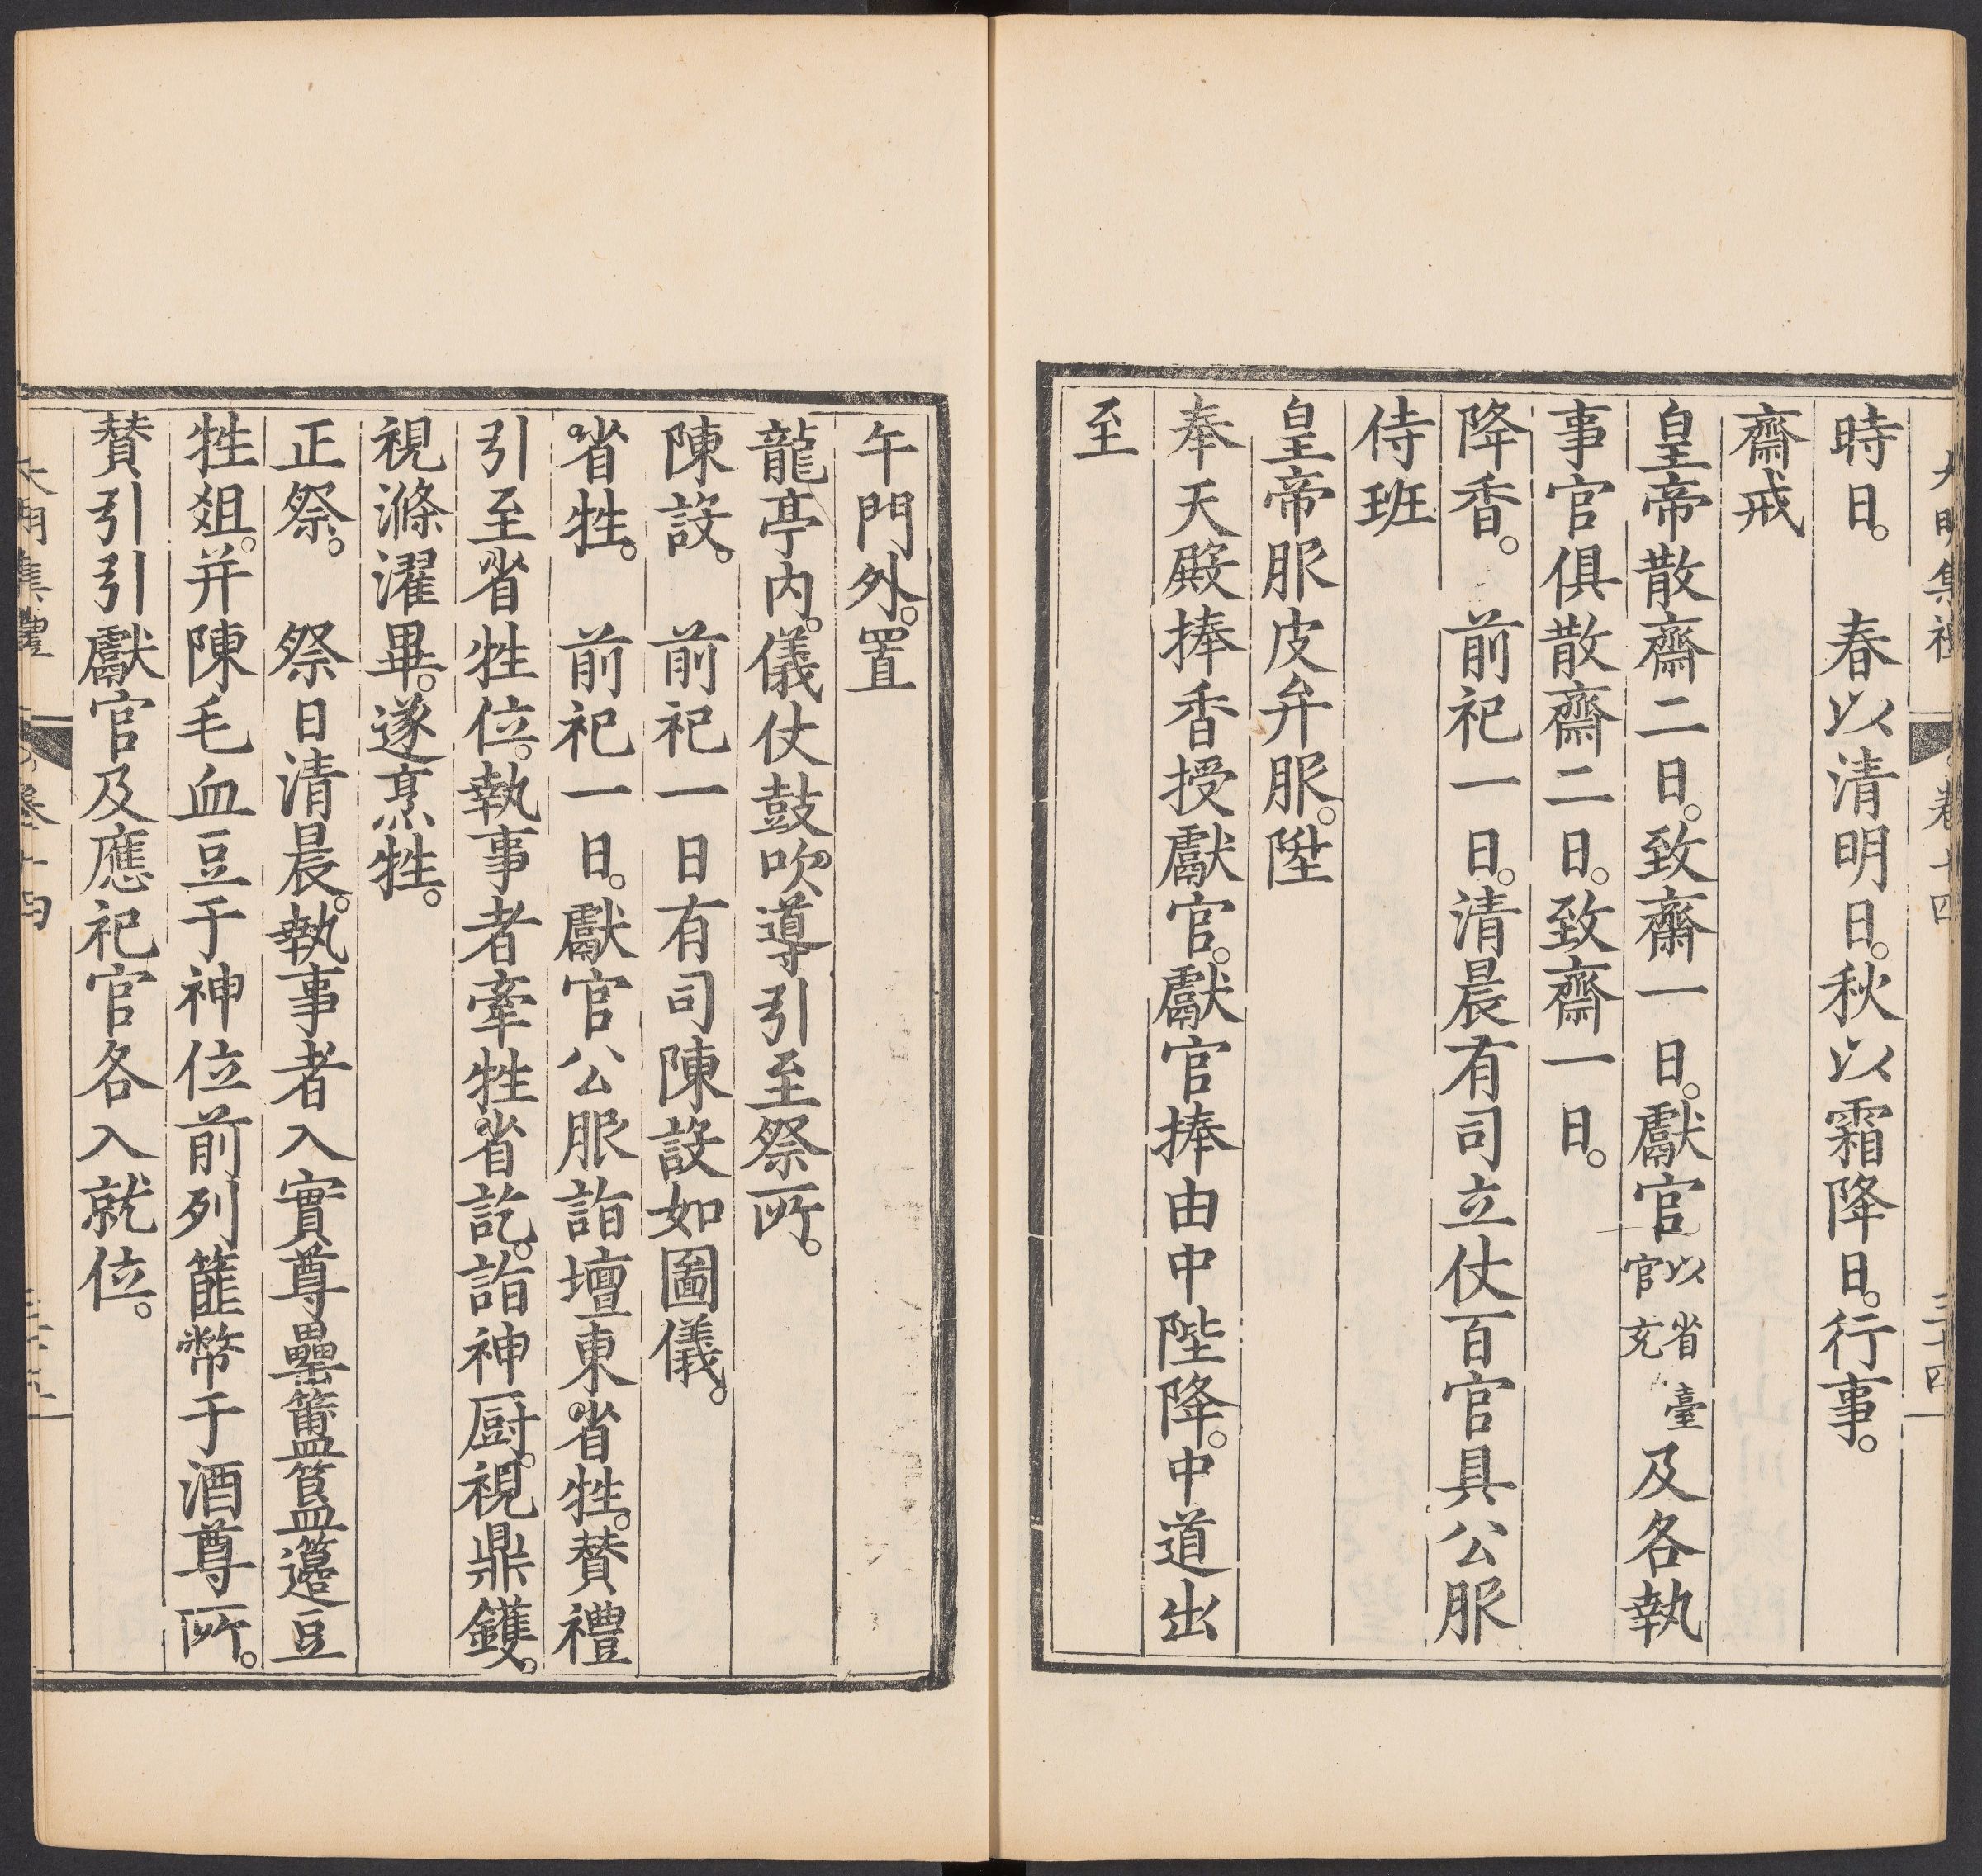 大明集禮
卷十四
三十四
時日。　春以清明日。秋以霜降日。行事。
齋戒
皇帝散齋二日。致齋一日。獻官以省臺官充及各執
事官俱散齋二日。致齋一日。
降香。　前祀一日。清晨有司立仗百官具公服
侍班
皇帝服皮弁服。陞
奉天殿捧香授獻官。獻官捧由中陛降。中道出
至
午門外。置
龍亭內。儀仗鼓吹導引至祭所。
陳設。　前祀一日有司陳設如圖儀。
省牲。　前祀一日。獻官公服詣壇東省牲。賛禮
引至省牲位。執事者牽牲省訖。詣神厨。視鼎鑊。
視滌濯畢。遂烹牲。
正祭。　祭日清晨。執事者入實尊罍簠簋籩豆
牲俎。并陳毛血豆于神位前列篚幣于酒尊所。
賛引引獻官及應祀官各入就位。
大明集禮
卷十四